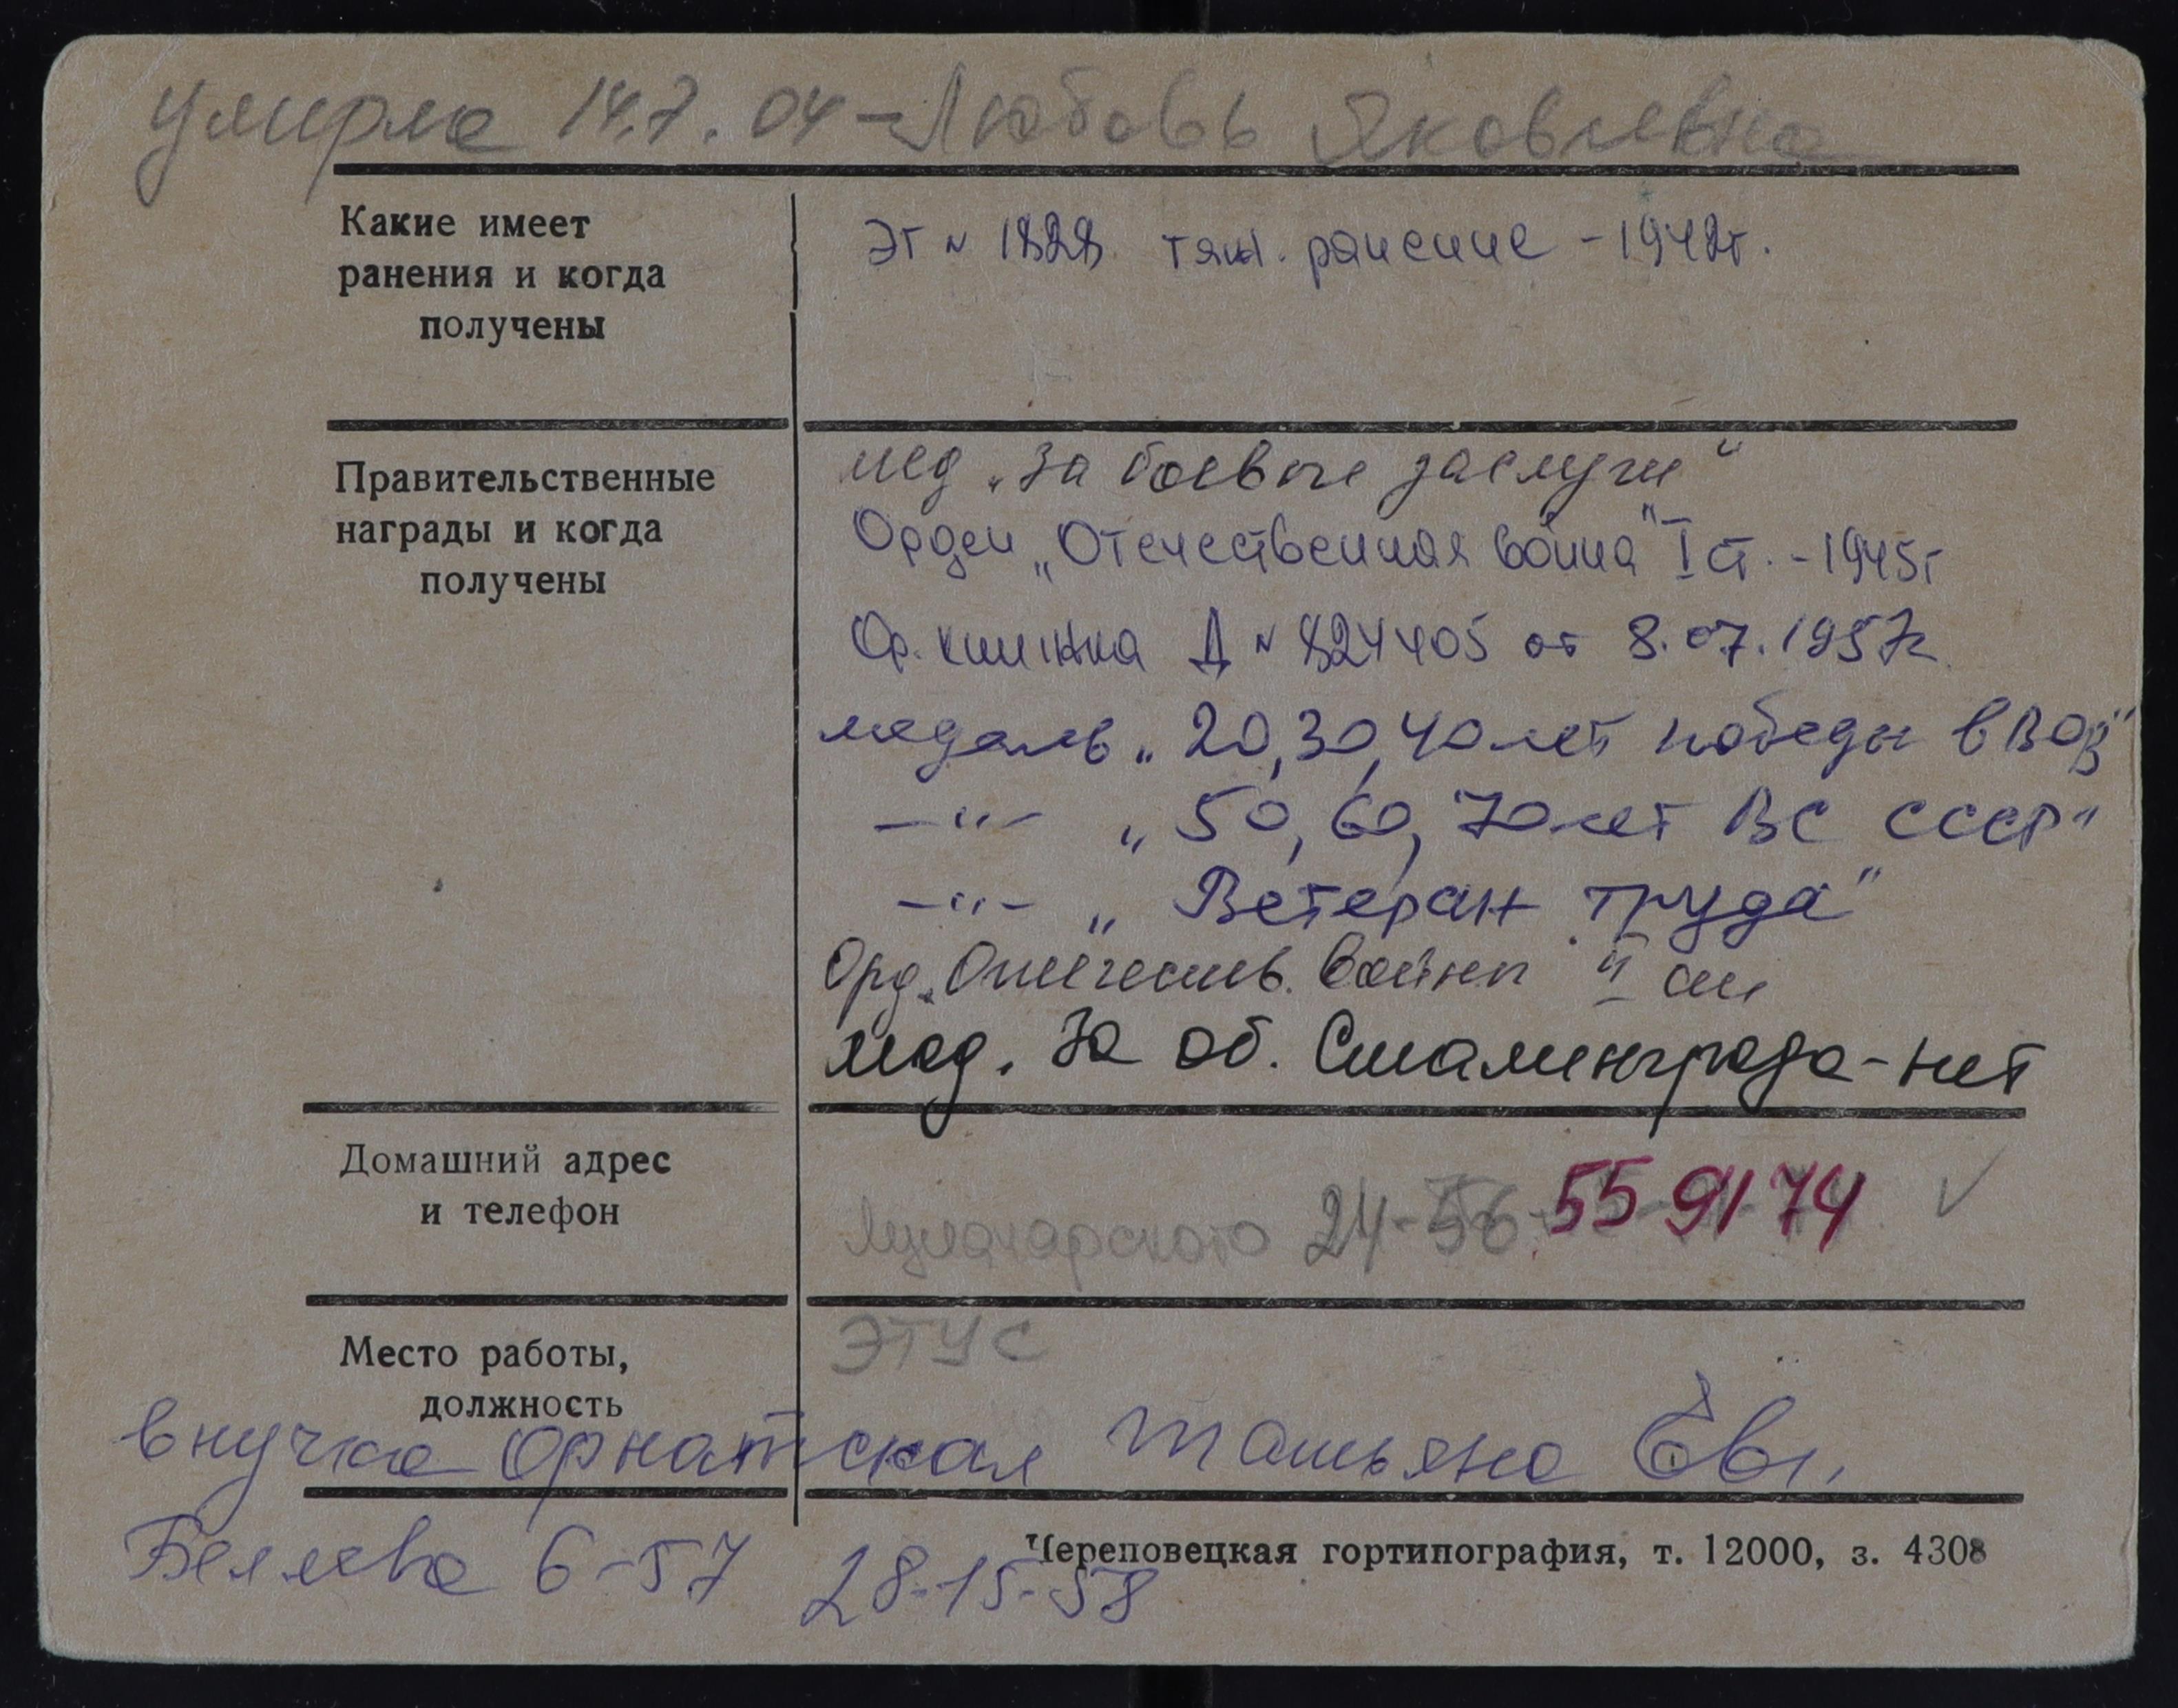 умерла 14.7.04 - Любовь Яковлевна
Какие имеет
ранения и когда
получены
ЭГ № 1828. тяж. ранение - 1942г.
Правительственные
награды и когда
получены
мед „За боевые заслуги“
Орден „Отечественная война“ I ст. - 1945г
Ор. книжка Д № 824405 от 8.07.1957г.
медаль „20, 30, 40 лет победы в ВОВ“
—"— „50, 60, 70 лет ВС СССР“
—"— „Ветеран труда“
Орд. „Отечеств. войны II ст
мед. За об. Сталинграда - нет
Домашний адрес
и телефон
Луначарского 24-56 55 91 74 ✓
Место работы,
должность
ЭТУС
внучка Орнатская Татьяна Евг.
Беляева 6-57 28-15-58
Череповецкая гортипография, т. 12000, з. 4308